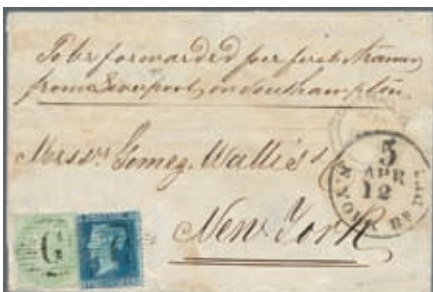 To be forwarded per first Steamer
from Liverpool, or Southampton.
Messrs. Gomez, Wallis &
New York
5
APR
12
N. YORK BR. PKT
G